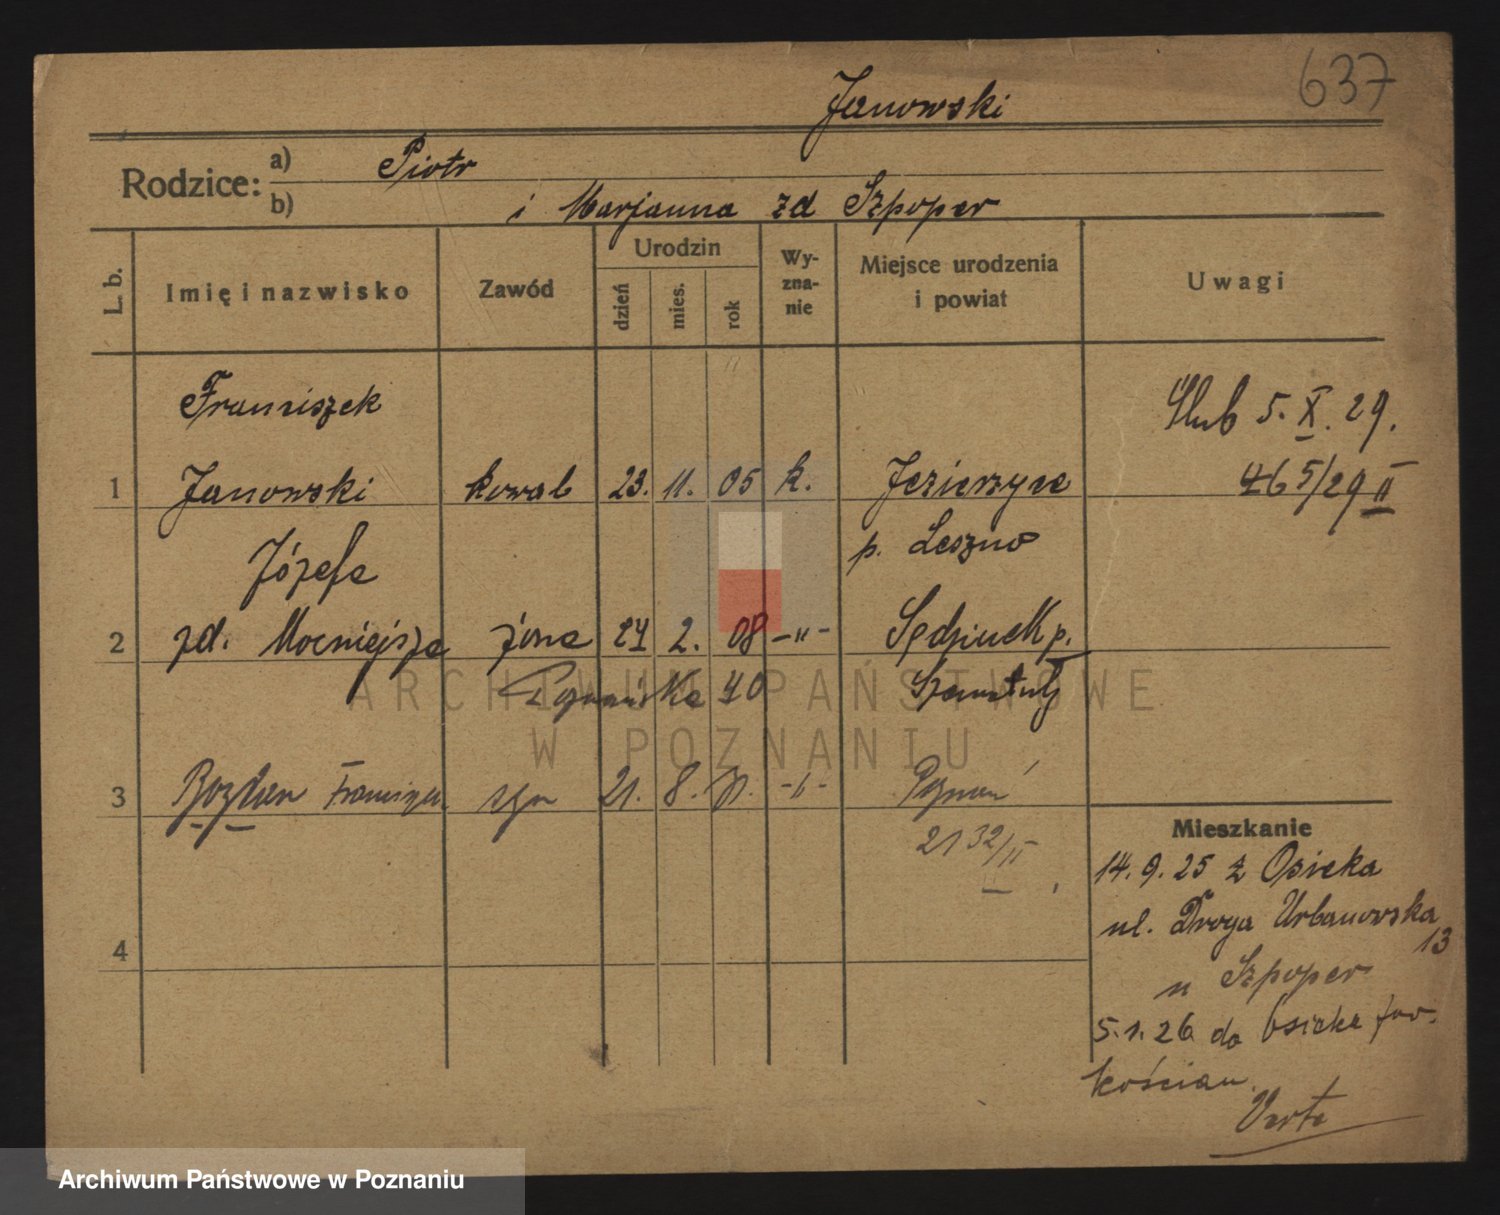 637
Janowski
Rodzice: a) Piotr
b) i Marjanna zd Szpoper
L. b. Imię i nazwisko Zawód Urodzin dzień mies. rok Wyznanie Miejsce urodzenia i powiat Uwagi
Franciszek
Ślub 5. X. 29.
1 Janowski kowal 23. 11. 05 k. Jezierzyce 465/29 II
Józefa p. Leszno
2 zd. Mocniejsza żona 24 2. 08 -"- Sędzinek p.
Poznańska 40 Szamotuły
3 Bozdan Franciszek syn 21. 8. -"- Poznań
2132/II
Mieszkanie
14. 9. 25 z Osieka
ul. Droga Urbanowska
13
4
u Szpoper
5. 1. 26 do Osieka pow.
Kościan.
Verte
ARCHIWUM PAŃSTWOWE
W POZNANIU
Archiwum Państwowe w Poznaniu